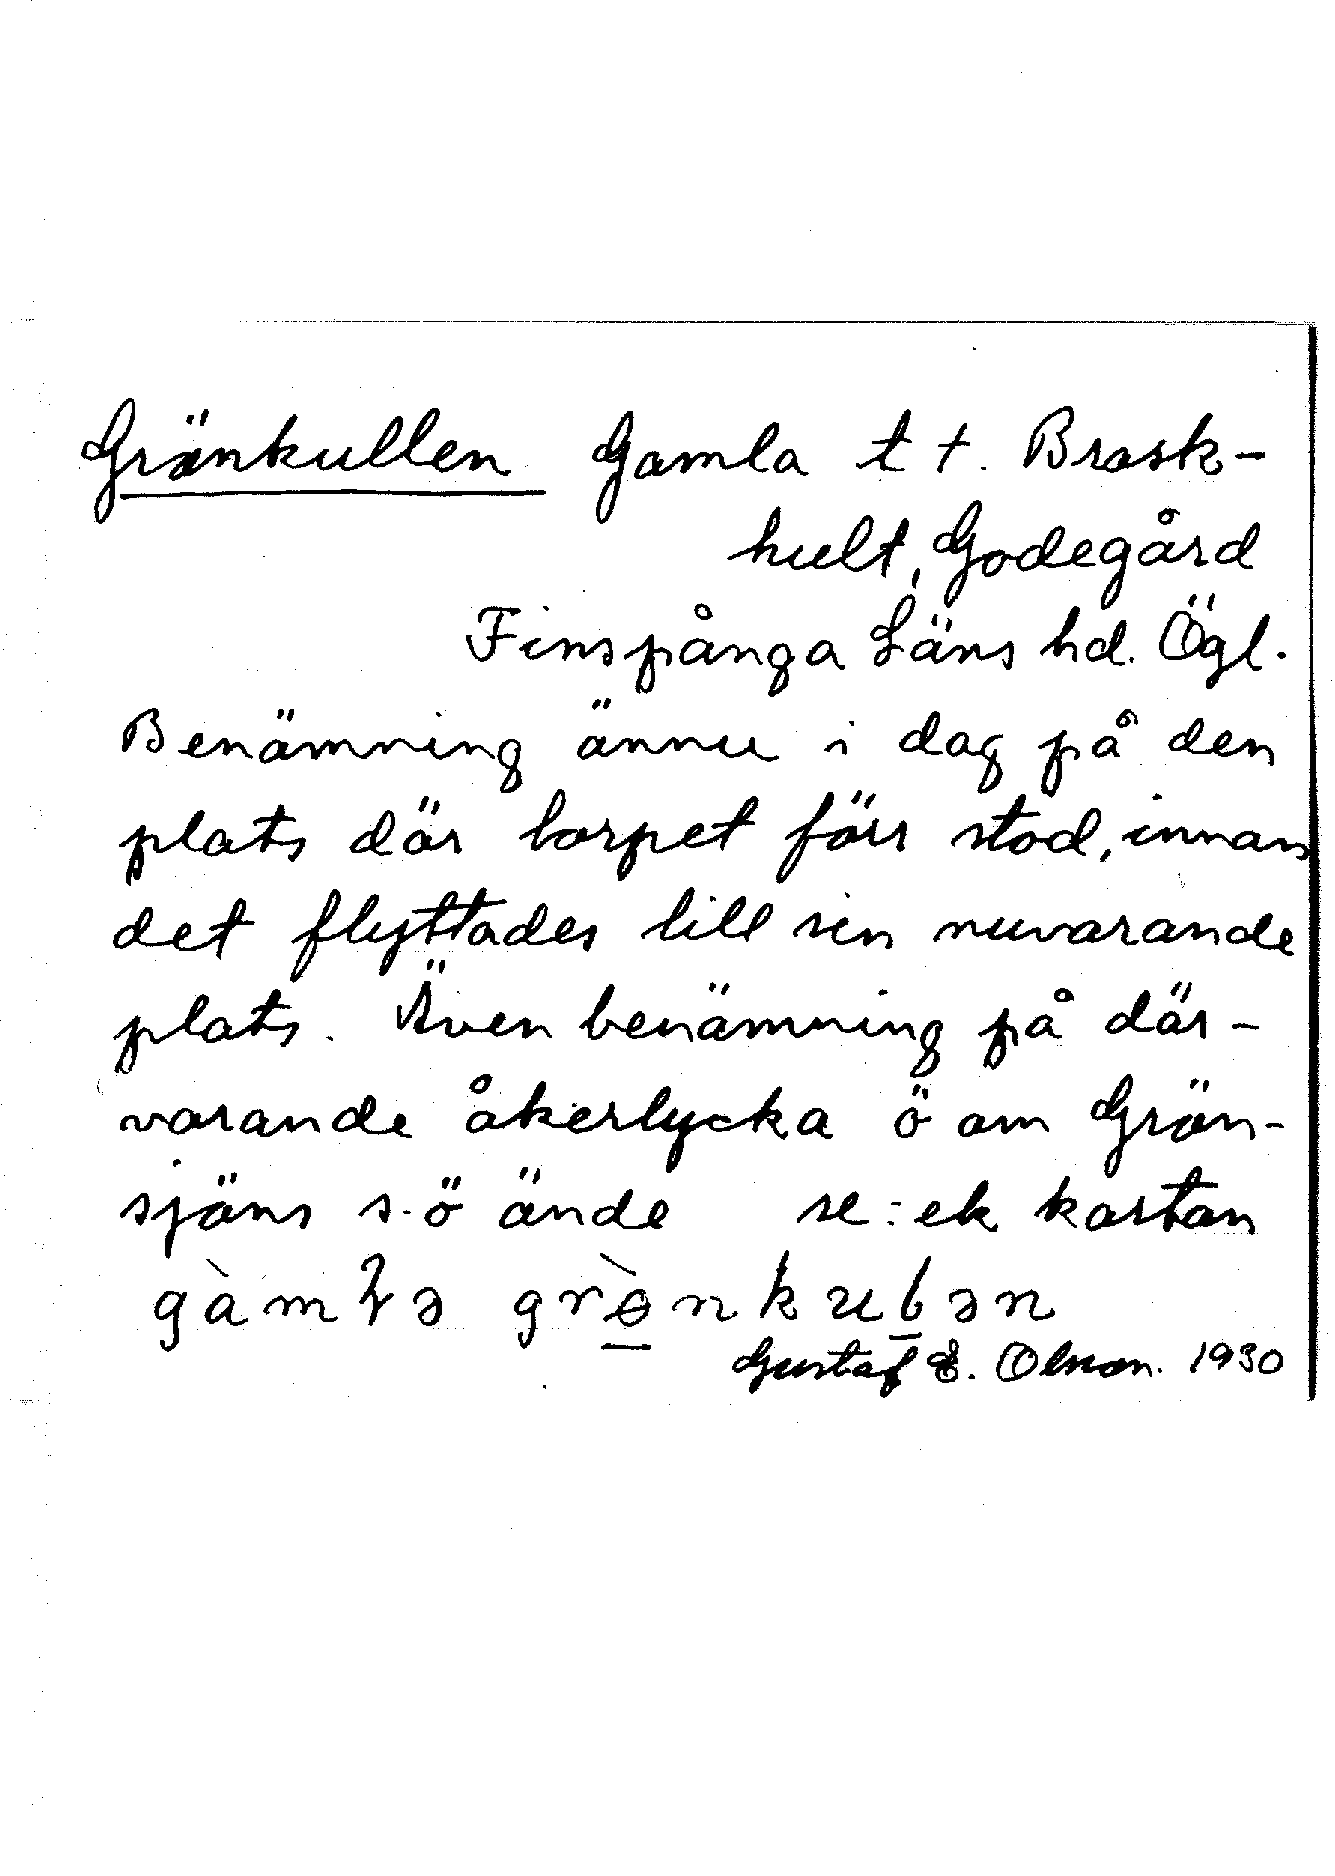 Grönkullen Gamla t t. Brask-
hult, Godegård
Finspånga Läns hd. Ögl.
Benämning ännu i dag på den
plats där torpet förr stod, innan
det flyttades till sin nuvarande
plats. Även benämning på där-
varande åkerlycka ö om Grön-
sjöns s.ö ände se: ek kartan
Gustaf E. Olson. 1930